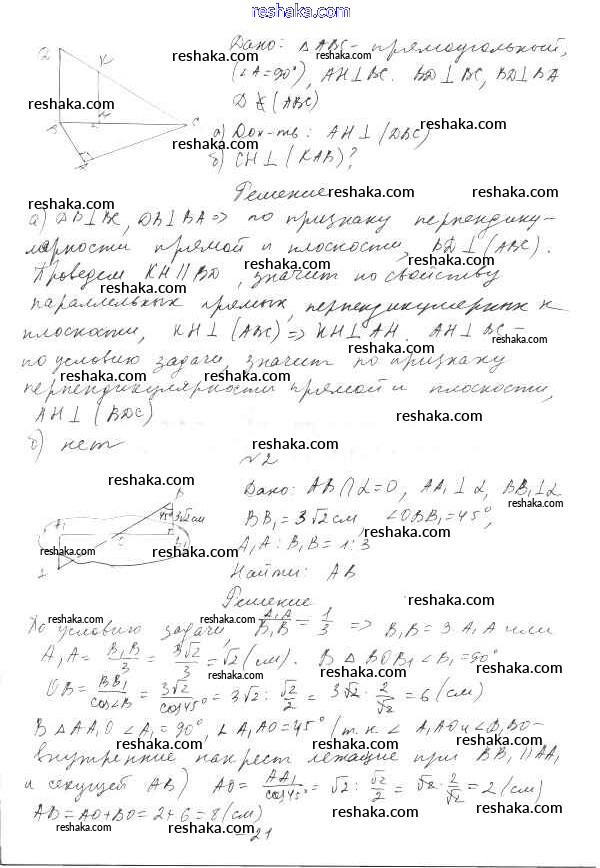 reshaka.com
Дано: △ABC - прямоугольный,
(∠A=90°), AH⊥BC. BD⊥BC, BD⊥BA
D ∉ (ABC)
а) Док-ть: AH⊥(DBC)
б) CH⊥(KAB)?
Решение
а) DB⊥BC, DB⊥BA => по признаку перпендику-
лярности прямой и плоскости, BD⊥(ABC).
Проведем KH||BD, значит по свойству
параллельных прямых, перпендикулярных к
плоскости, KH⊥(ABC) => KH⊥AH. AH⊥BC -
по условию задачи, значит по признаку
перпендикулярности прямой и плоскости,
AH⊥(BDC)
б) нет
№2
Дано: AB∩α=O, AA₁⊥α, BB₁⊥α
BB₁=3√2см ∠OBB₁=45°,
A₁A:B₁B=1:3
Найти: AB
Решение
По условию задачи, A₁A/B₁B = 1/3 => B₁B=3A₁A или
A₁A = B₁B/3 = 3√2/3 = √2 (см). В △BOB₁ ∠B₁=90°
OB = BB₁/cos∠B = 3√2/cos45° = 3√2 : √2/2 = 3√2 · 2/√2 = 6 (см)
В △AA₁O ∠A₁=90°, ∠A₁AO=45° (т.к ∠A₁AO и ∠B₁BO-
внутренние накрест лежащие при BB₁||AA₁
и секущей AB) AO = AA₁/cos45° = √2 : √2/2 = √2 · 2/√2 = 2 (см)
AB=AO+BO=2+6=8 (см)
21